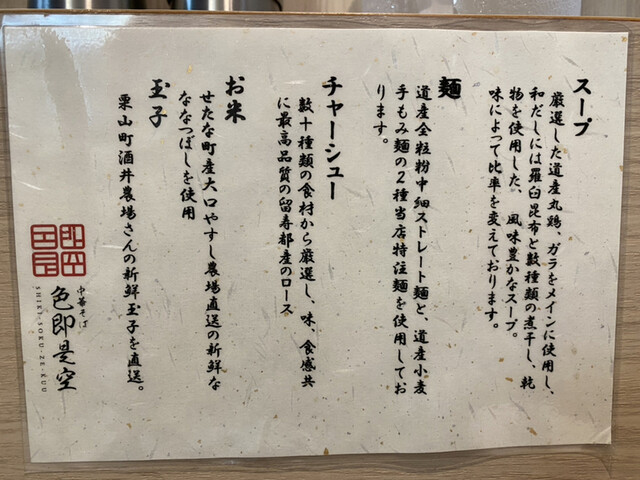 スープ
厳選した道産丸鶏、ガラをメインに使用し、
和だしには羅臼昆布と数種類の煮干し、乾
物を使用した、風味豊かなスープ。
味によって比率を変えております。
麺
道産全粒粉中細ストレート麺と、道産小麦
手もみ麺の2種当店特注麺を使用してお
ります。
チャーシュー
数十種類の食材から厳選し、味、食感共
に最高品質の留寿都産のロース
お米
せたな町産大口やすし農場直送の新鮮な
ななつぼしを使用
玉子
栗山町酒井農場さんの新鮮玉子を直送。
中華そば
色即是空
SHIKI-SOKU-ZE-KUU